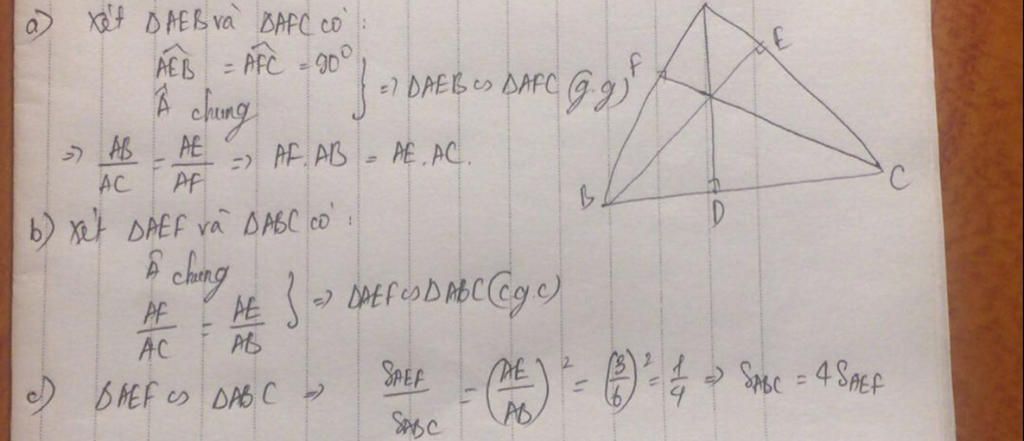 a) Xét ΔAEB và ΔAFC có:
$\widehat{AEB}$ = $\widehat{AFC}$ = 90°
$\widehat{A}$ chung
} => ΔAEB ∽ ΔAFC (g.g)
=> $\frac{AB}{AC} = \frac{AE}{AF}$ => AF.AB = AE.AC.
b) Xét ΔAEF và ΔABC có:
$\widehat{A}$ chung
$\frac{AF}{AC} = \frac{AE}{AB}$
} => ΔAEF ∽ ΔABC (c.g.c)
c) ΔAEF ∽ ΔABC => $\frac{S_{AEF}}{S_{ABC}} = \left(\frac{AE}{AB}\right)^2 = \left(\frac{3}{6}\right)^2 = \frac{1}{4}$ => $S_{ABC} = 4S_{AEF}$
E
F
B
D
C